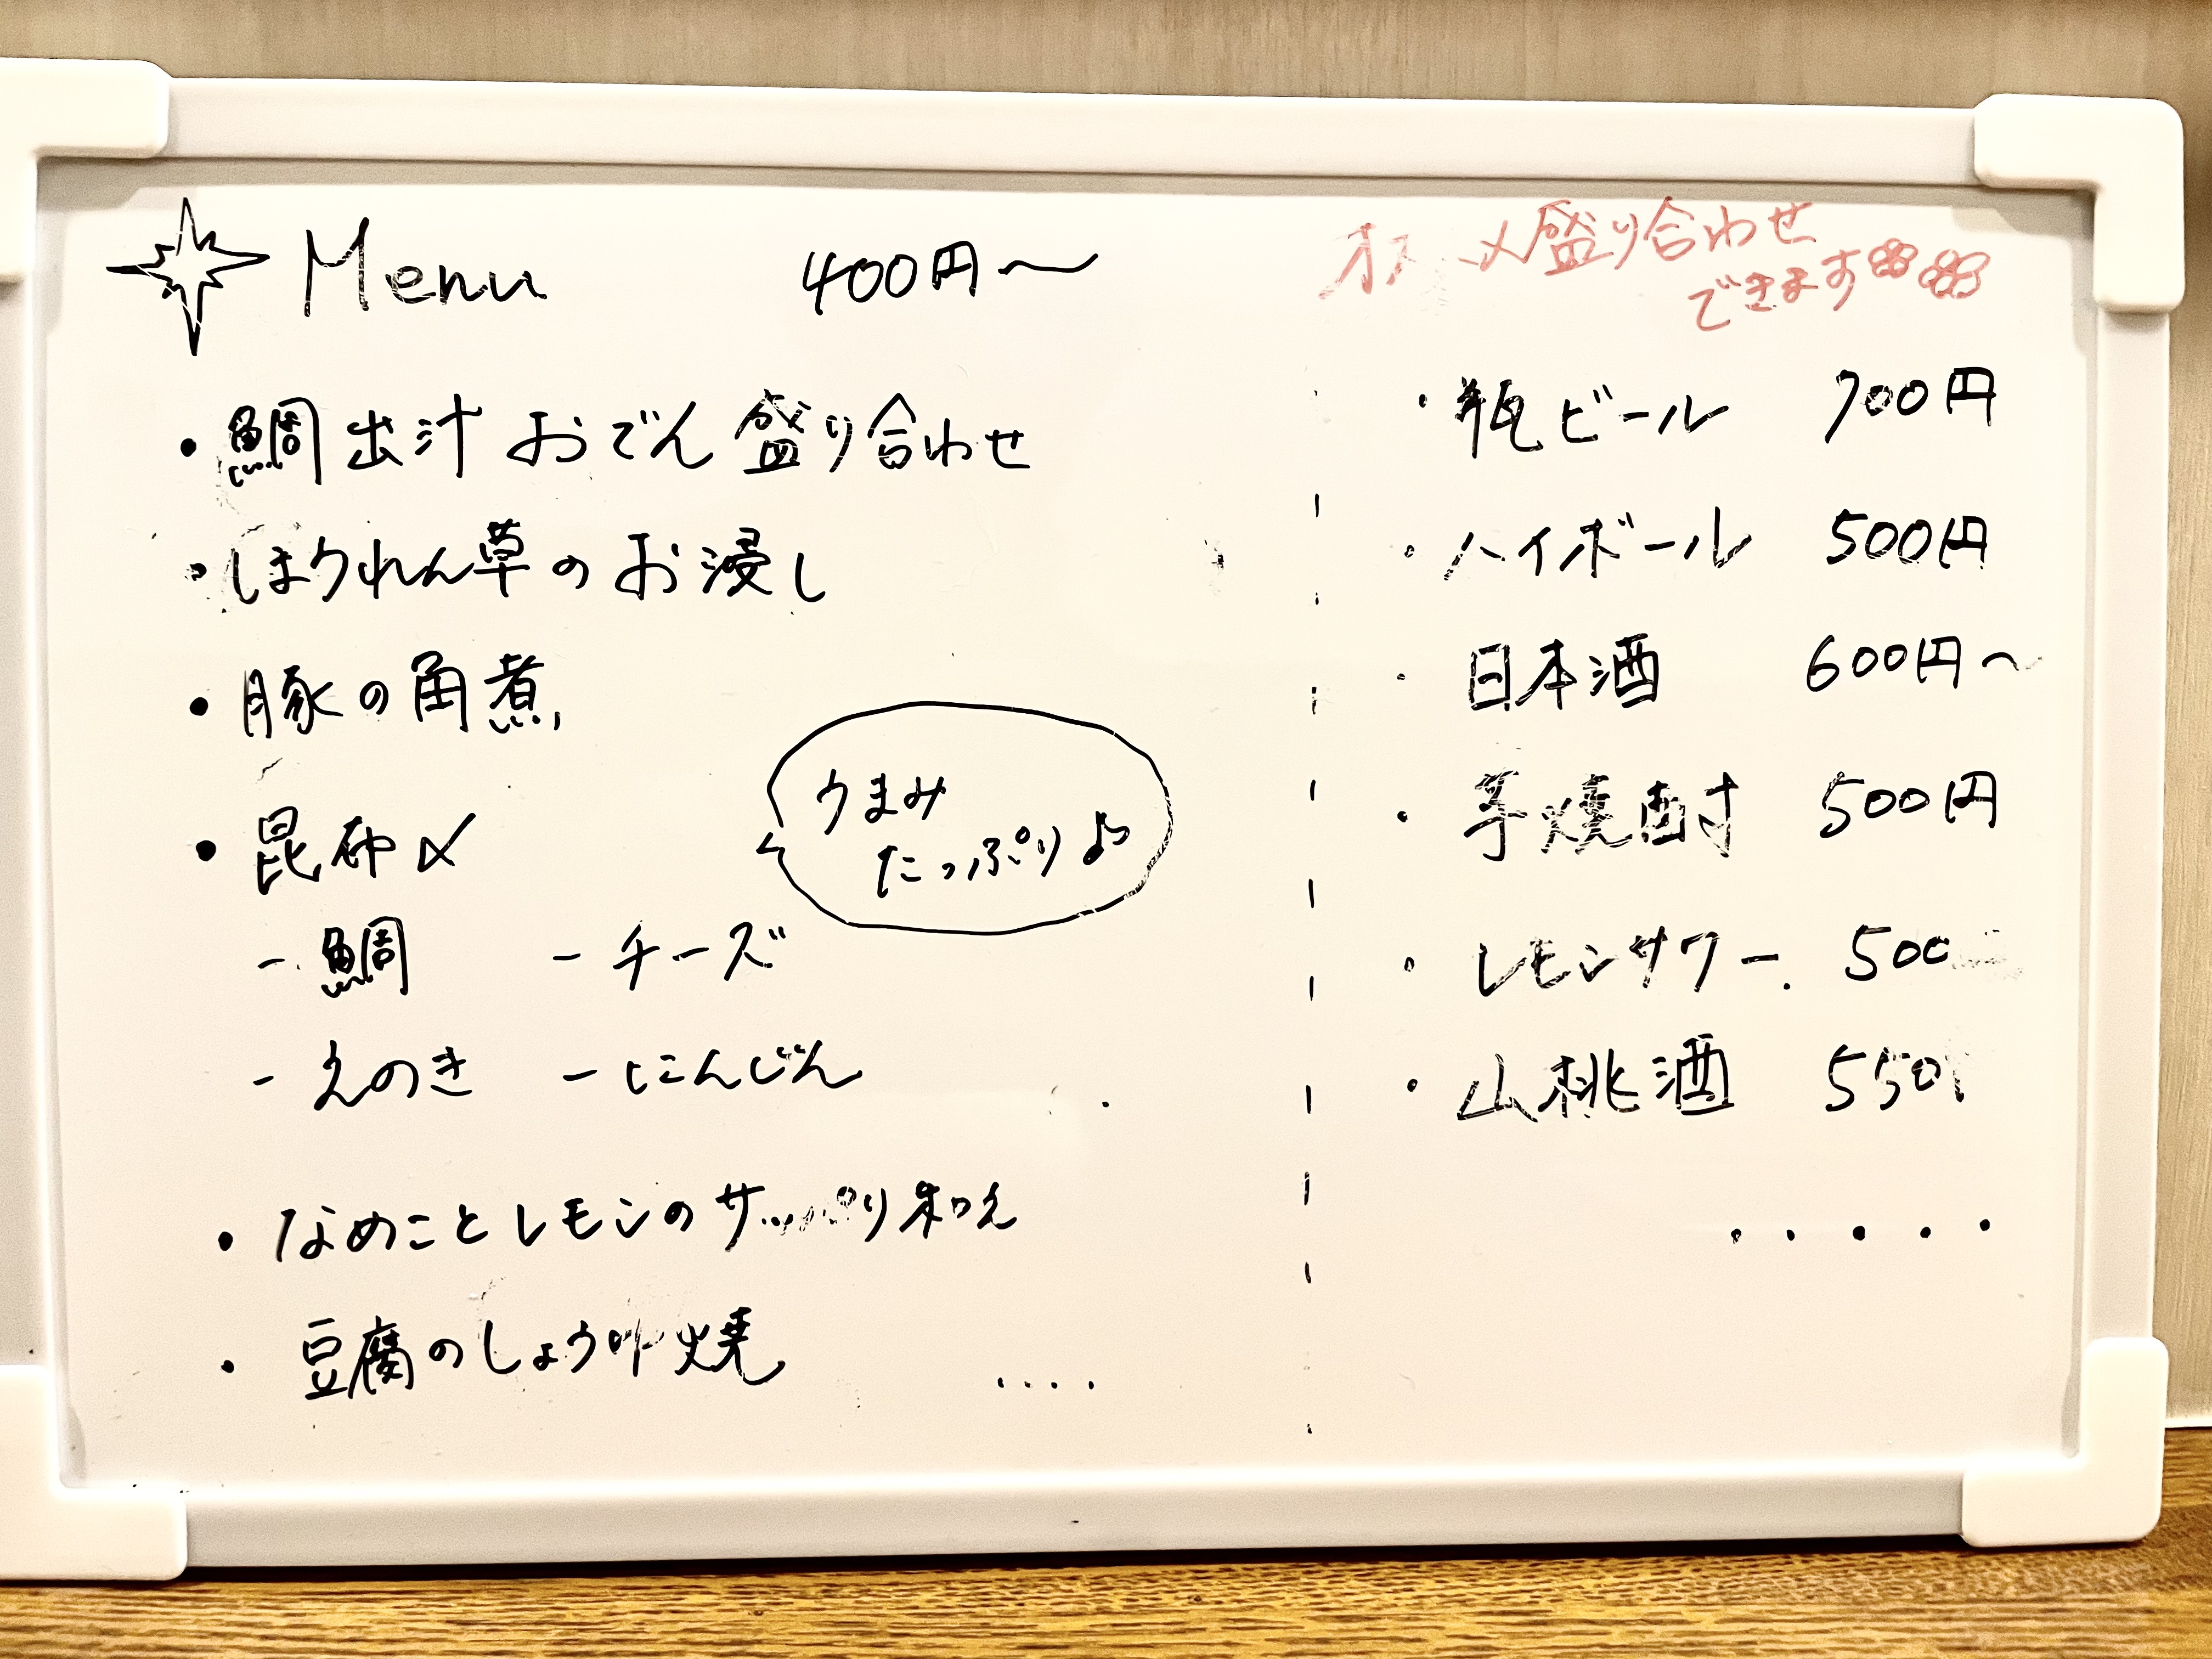 Menu 400円〜
・鯛出汁おでん盛り合わせ
・ほうれん草のお浸し
・豚の角煮
・昆布〆
うまみ
たっぷり♪
- 鯛 - チーズ
- えのき - にんじん
・なめことレモンのサッパリ和え
・豆腐のしょうゆ焼
....
盛り合わせ
できます
・瓶ビール 700円
・ハイボール 500円
・日本酒 600円〜
・芋焼酎 500円
・レモンサワー 500
・山桃酒 550
.....